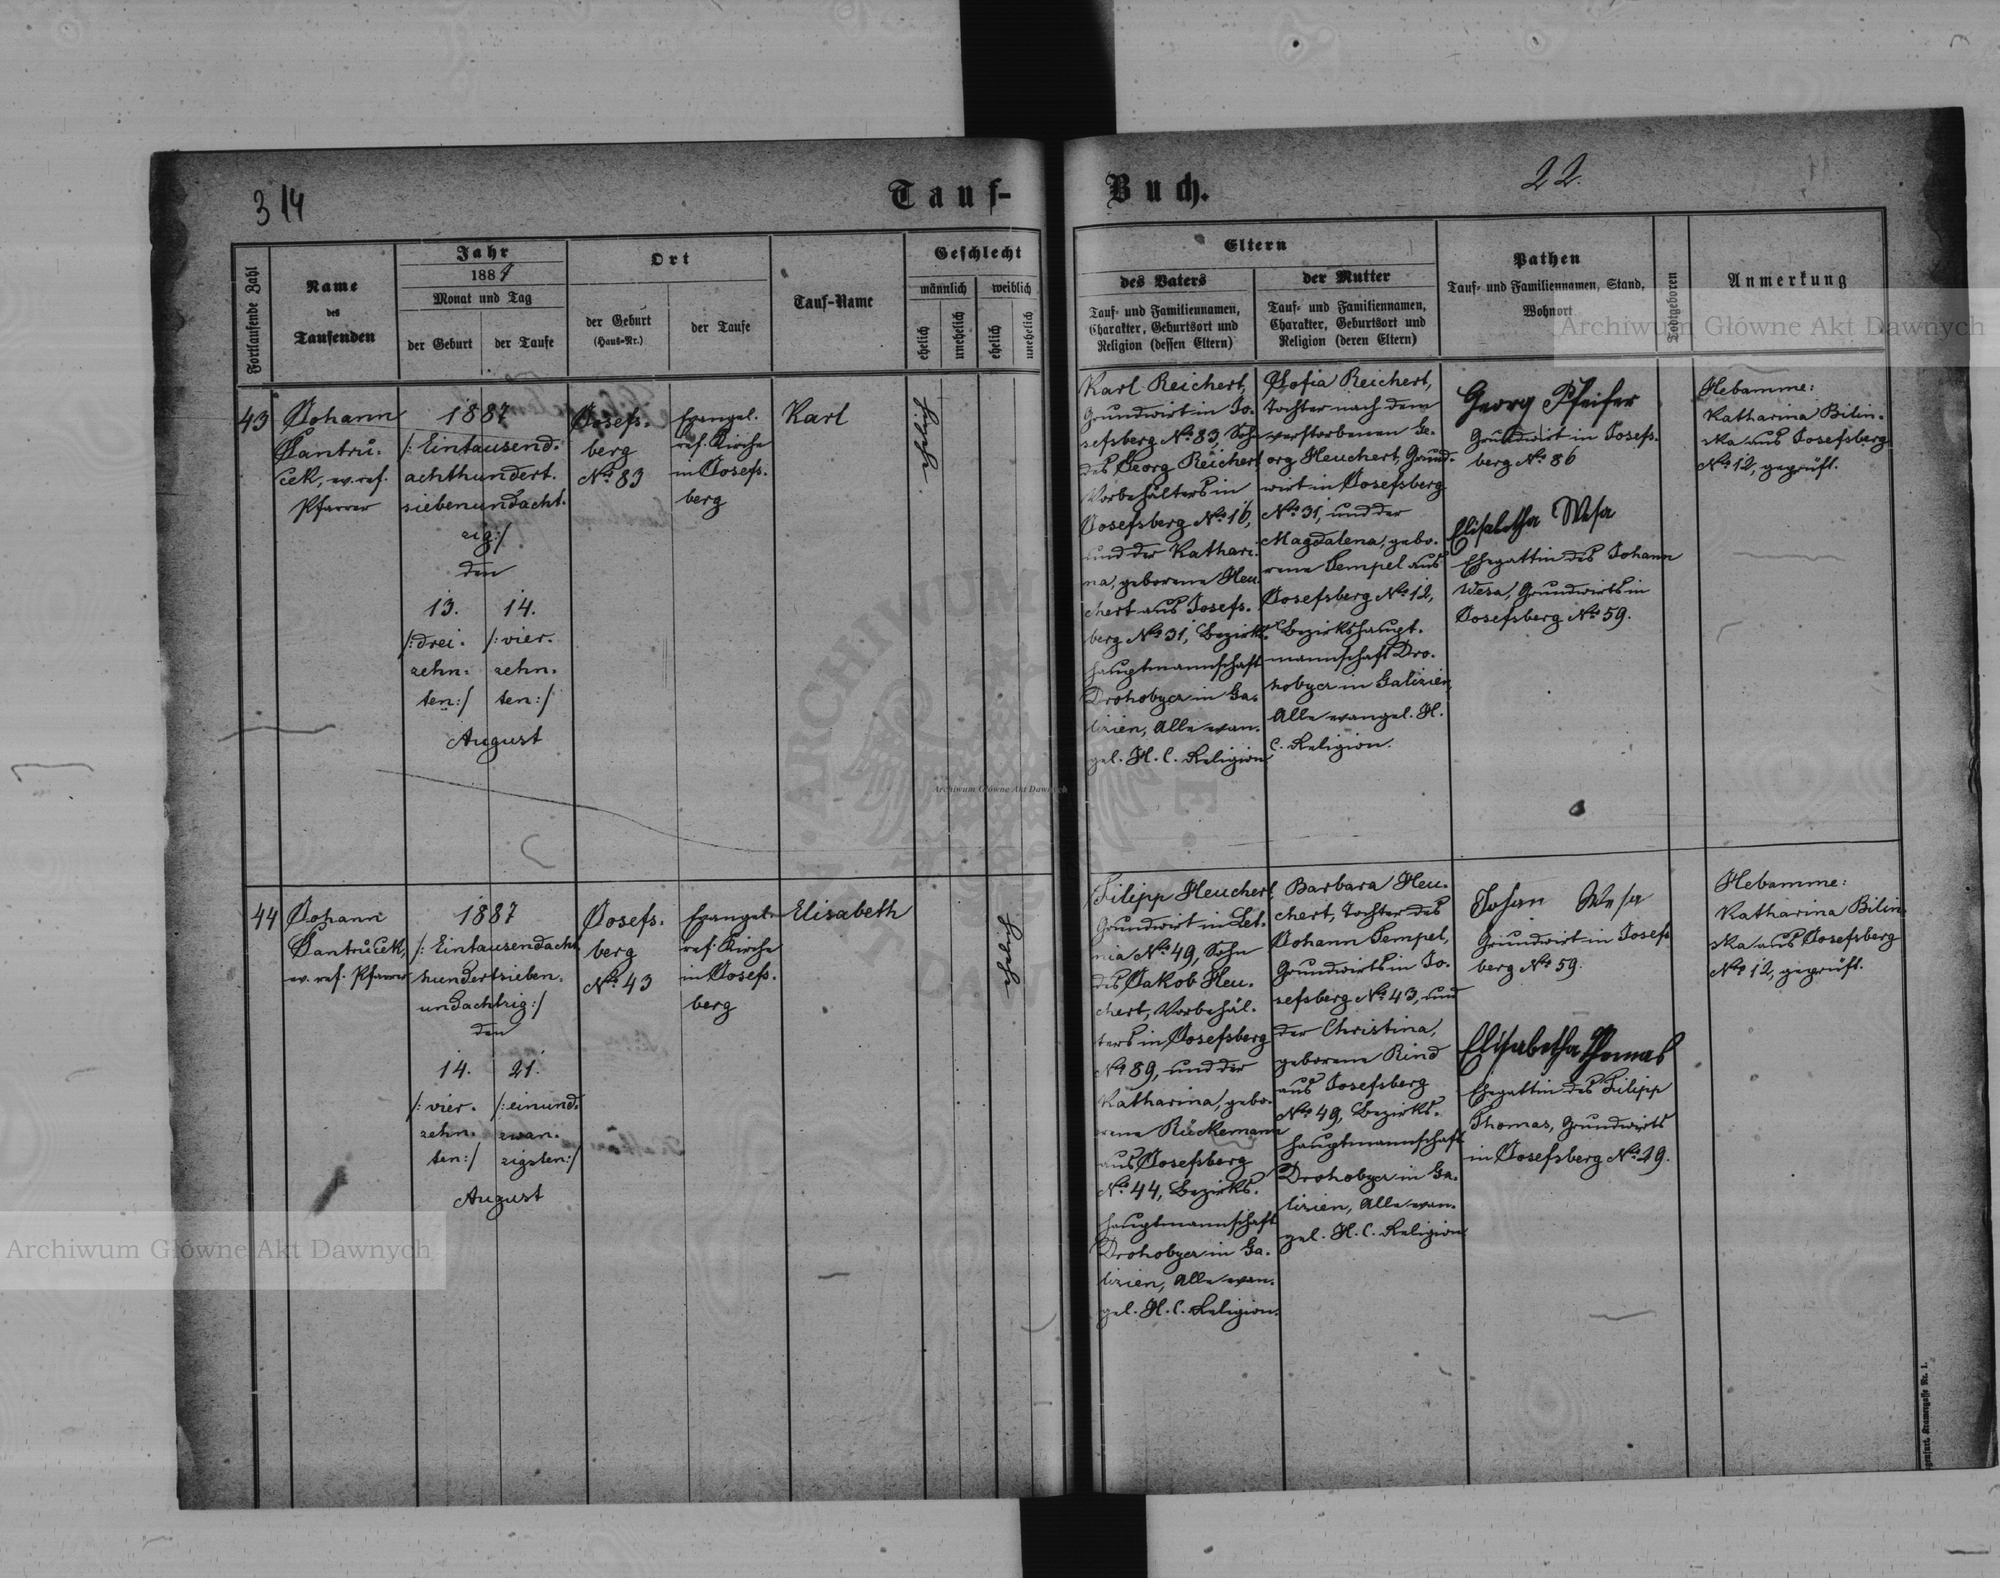 314
Tauf-
Buch.
22.
Fortlaufende Zahl
Name
des
Taufenden
Jahr
1887
Monat und Tag
der Geburt
der Taufe
Ort
der Geburt
(Haus-Nr.)
der Taufe
Tauf-Name
Geschlecht
männlich
weiblich
ehelich
unehelich
ehelich
unehelich
Eltern
des Vaters
Tauf- und Familiennamen,
Charakter, Geburtsort und
Religion (dessen Eltern)
der Mutter
Tauf- und Familiennamen,
Charakter, Geburtsort und
Religion (deren Eltern)
Pathen
Tauf- und Familiennamen, Stand,
Wohnort
Todtgeboren
Anmerkung
43
Johann
Šantrů-
ček, ev. ref.
Pfarrer
1887
/: Eintausend-
achthundert-
siebenundacht-
zig :/
den
13.
/: drei-
zehn-
ten :/
14.
/: vier-
zehn-
ten :/
August
Josefs-
berg
No. 83
Evangel.
ref. Kirche
in Josefs-
berg
Karl
ehelich
Karl Reichert,
Grundwirt in Jo-
sefsberg No. 83, Sohn
des Georg Reichert
Vorbehälters in
Josefsberg No. 16,
und der Kathari-
na, geborene Heu-
chert aus Josefs-
berg No. 31, Bezirks-
hauptmannschaft
Drohobycz in Ga-
lizien, Alle evan-
gel. H. C. Religion
Sofia Reichert,
Tochter nach dem
verstorbenen Ge-
org Heuchert, Grund-
wirt in Josefsberg
No. 31, und der
Magdalena, gebo-
rene Tempel aus
Josefsberg No. 12,
Bezirkshaupt-
mannschaft Dro-
hobycz in Galizien,
Alle evangel. H.
C. Religion.
Georg Pfeifer
Grundwirt in Josefs-
berg No. 86
Elisabetha Wesa
Ehegattin des Johann
Wesa, Grundwirts in
Josefsberg No. 59.
Hebamme:
Katharina Bilin-
ska aus Josefsberg
No. 12, geprüft.
44
Johann
Šantrůček,
ev. ref. Pfarrer
1887
/: Eintausendacht-
hundertsieben-
undachtzig :/
den
14.
/: vier-
zehn-
ten :/
21.
/: einund-
zwan-
zigsten :/
August
Josefs-
berg
No. 43
Evangel.
ref. Kirche
in Josefs-
berg
Elisabeth
ehelich
Filipp Heuchert,
Grundwirt in Let-
nia No. 49, Sohn
des Jakob Heu-
chert, Vorbehäl-
ters in Josefsberg
No. 89, und der
Katharina, gebo-
rene Rückemann
aus Josefsberg
No. 44, Bezirks-
hauptmannschaft
Drohobycz in Ga-
lizien, Alle evan-
gel. H. C. Religion.
Barbara Heu-
chert, Tochter des
Johann Tempel,
Grundwirts in Jo-
sefsberg No. 43, und
der Christina,
geborene Rind
aus Josefsberg
No. 49, Bezirks-
hauptmannschaft
Drohobycz in Ga-
lizien, Alle evan-
gel. H. C. Religion
Johan Wesa
Grundwirt in Josefs
berg No. 59.
Elisabetha Thomas
Ehegattin des Filipp
Thomas, Grundwirts
in Josefsberg No. 29.
Hebamme:
Katharina Bilin-
ska aus Josefsberg
No. 12, geprüft.
Archiwum Główne Akt Dawnych
Archiwum Główne Akt Dawnych
Archiwum Główne Akt Dawnych